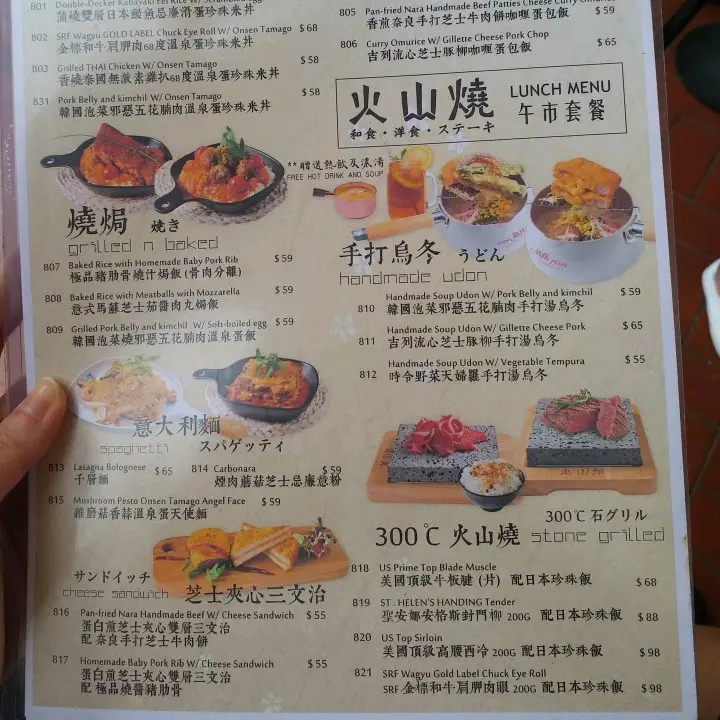 801 Double-Decker Kabayaki Eel Rice W/ Scrambled Egg
蒲燒雙層日本鰻魚忌廉滑蛋珍珠米丼
802 SRF Wagyu GOLD LABEL Chuck Eye Roll W/ Onsen Tamago $ 68
金標和牛肩胛肉68度溫泉蛋珍珠米丼
803 Grilled THAI Chicken W/ Onsen Tamago $ 58
香燒泰國無激素雞扒68度溫泉蛋珍珠米丼
831 Pork Belly and kimchil W/ Onsen Tamago $ 58
韓國泡菜邪惡五花腩肉溫泉蛋珍珠米丼
805 Pan-fried Nara Handmade Beef Patties Cheese Curry Omurice $ 59
香煎奈良手打芝士牛肉餅咖喱蛋包飯
806 Curry Omurice W/ Gillette Cheese Pork Chop $ 65
吉列流心芝士豚柳咖喱蛋包飯
火山燒 LUNCH MENU
和食・洋食・ステーキ 午市套餐
**贈送熱飲及濃湯
FREE HOT DRINK AND SOUP
燒焗 焼き
grilled n baked
807 Baked Rice with Homemade Baby Pork Rib $ 59
極品豬肋骨燒汁焗飯(骨肉分離)
808 Baked Rice with Meatballs with Mozzarella $ 59
意式馬蘇芝士茄醬肉丸焗飯
809 Grilled Pork Belly and kimchil W/ Soft-boiled egg $ 59
韓國泡菜燒邪惡五花腩肉溫泉蛋飯
手打烏冬 うどん
handmade udon
810 Handmade Soup Udon W/ Pork Belly and kimchil $ 59
韓國泡菜邪惡五花腩肉手打湯烏冬
811 Handmade Soup Udon W/ Gillette Cheese Pork $ 65
吉列流心芝士豚柳手打湯烏冬
812 Handmade Soup Udon W/ Vegetable Tempura $ 55
時令野菜天婦羅手打湯烏冬
意大利麵
spaghetti スパゲッティ
813 Lasagna Bolognese $ 65
千層麵
814 Carbonara $ 59
煙肉蘑菇芝士忌廉意粉
815 Mushroom Pesto Onsen Tamago Angel Face $ 59
雜磨菇香蒜溫泉蛋天使麵
サンドイッチ
cheese sandwich 芝士夾心三文治
816 Pan-fried Nara Handmade Beef W/ Cheese Sandwich $ 55
蛋白煎芝士夾心雙層三文治
配 奈良手打芝士牛肉餅
817 Homemade Baby Pork Rib W/ Cheese Sandwich $ 55
蛋白煎芝士夾心雙層三文治
配 極品燒醬豬肋骨
300℃ 火山燒 300℃ 石グリル
stone grilled
818 US Prime Top Blade Muscle
美國頂級牛板腱 (片) 配日本珍珠飯 $ 68
819 ST . HELEN'S HANDING Tender
聖安娜安格斯封門柳 200G 配日本珍珠飯 $ 88
820 US Top Sirloin
美國頂級高腰西冷 200G 配日本珍珠飯 $ 98
821 SRF Wagyu Gold Label Chuck Eye Roll
SRF 金標和牛肩胛肉眼 200G 配日本珍珠飯 $ 98